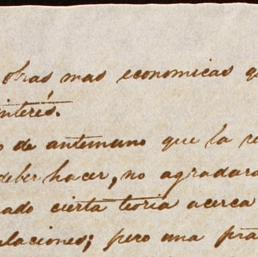 obras mas economicas q
interés.
o de antemano que la re
deber hacer, no agradara
ado cierta teoria acerca
elaciones; pero una prá